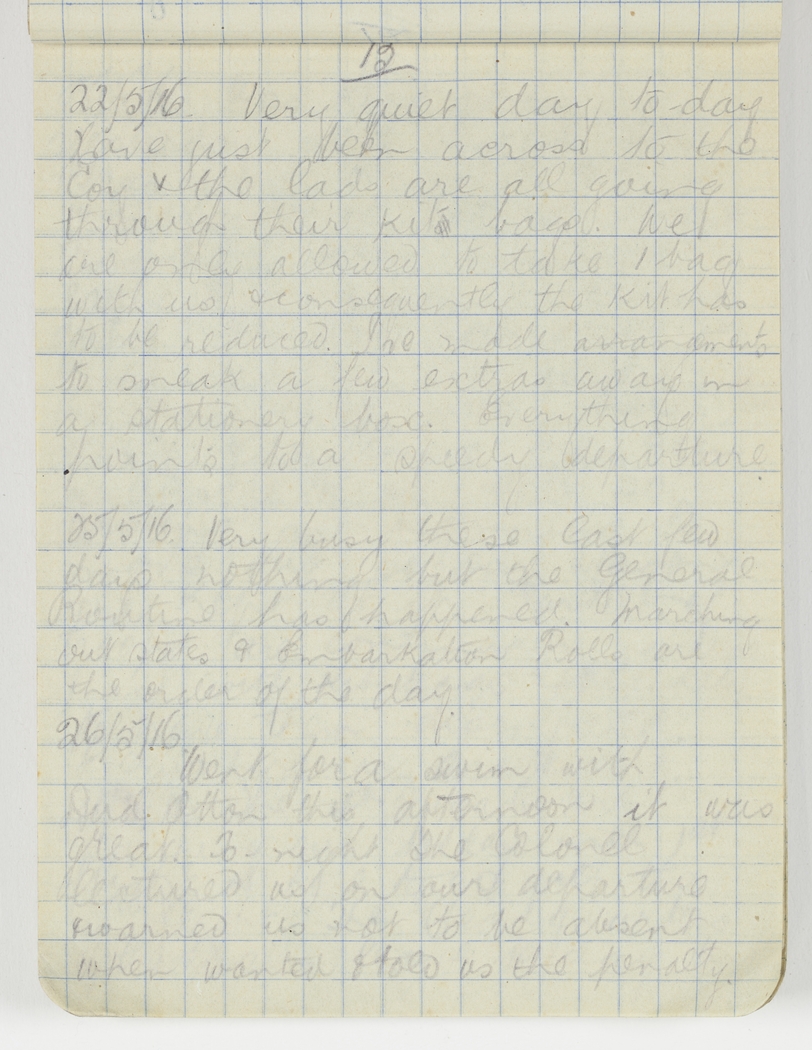 12
22/5/16. Very quiet day to-day
Have just been across to the
Coy & the lads are all going
through their kit bags. We
are only allowed to take 1 bag
with us & consequently the kit has
to be reduced. I've made arrangements
to sneak a few extras away in
a stationery box. Everything
points to a speedy departure
25/5/16. Very busy these last few
days nothing but the General
Routine has happened. Marching
out states & Embarkation Rolls are
the order of the day
26/5/16.
Went for a swim with
Dud. Otton this afternoon it was
great. To-night the Colonel
lectured us on our departure
& warned us not to be absent
when wanted & told us the penalty.